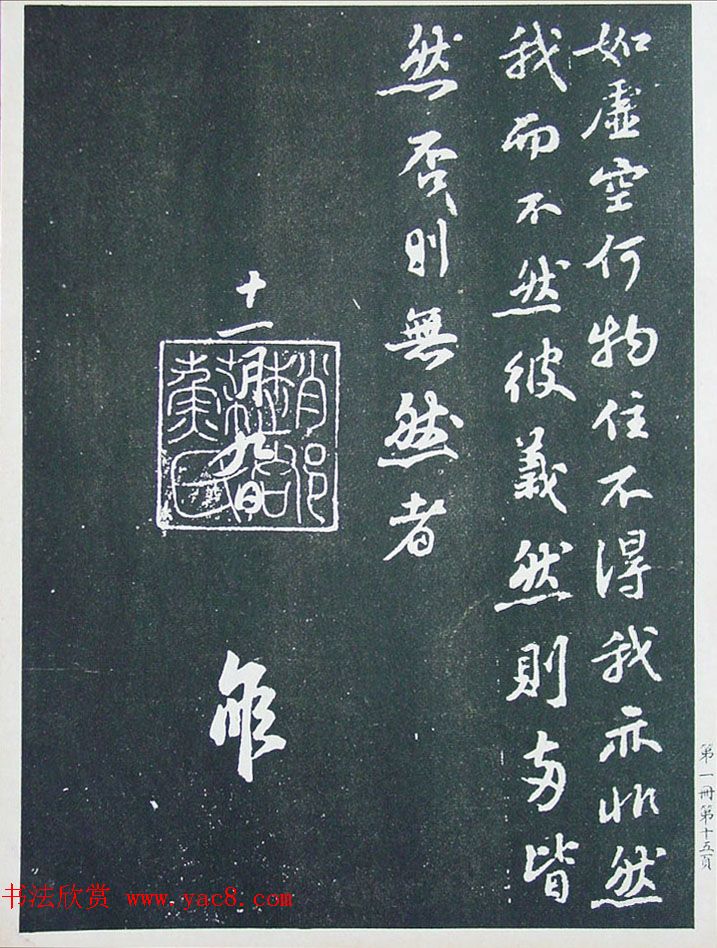 如虛空何物住不得我亦非然
我而不然彼義然則両皆
然否則無然者
十一月九日
第一冊第十五頁
书法欣赏 www.yac8.com